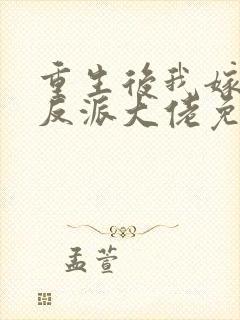 重生後我嫁
反派大佬免
孟萱